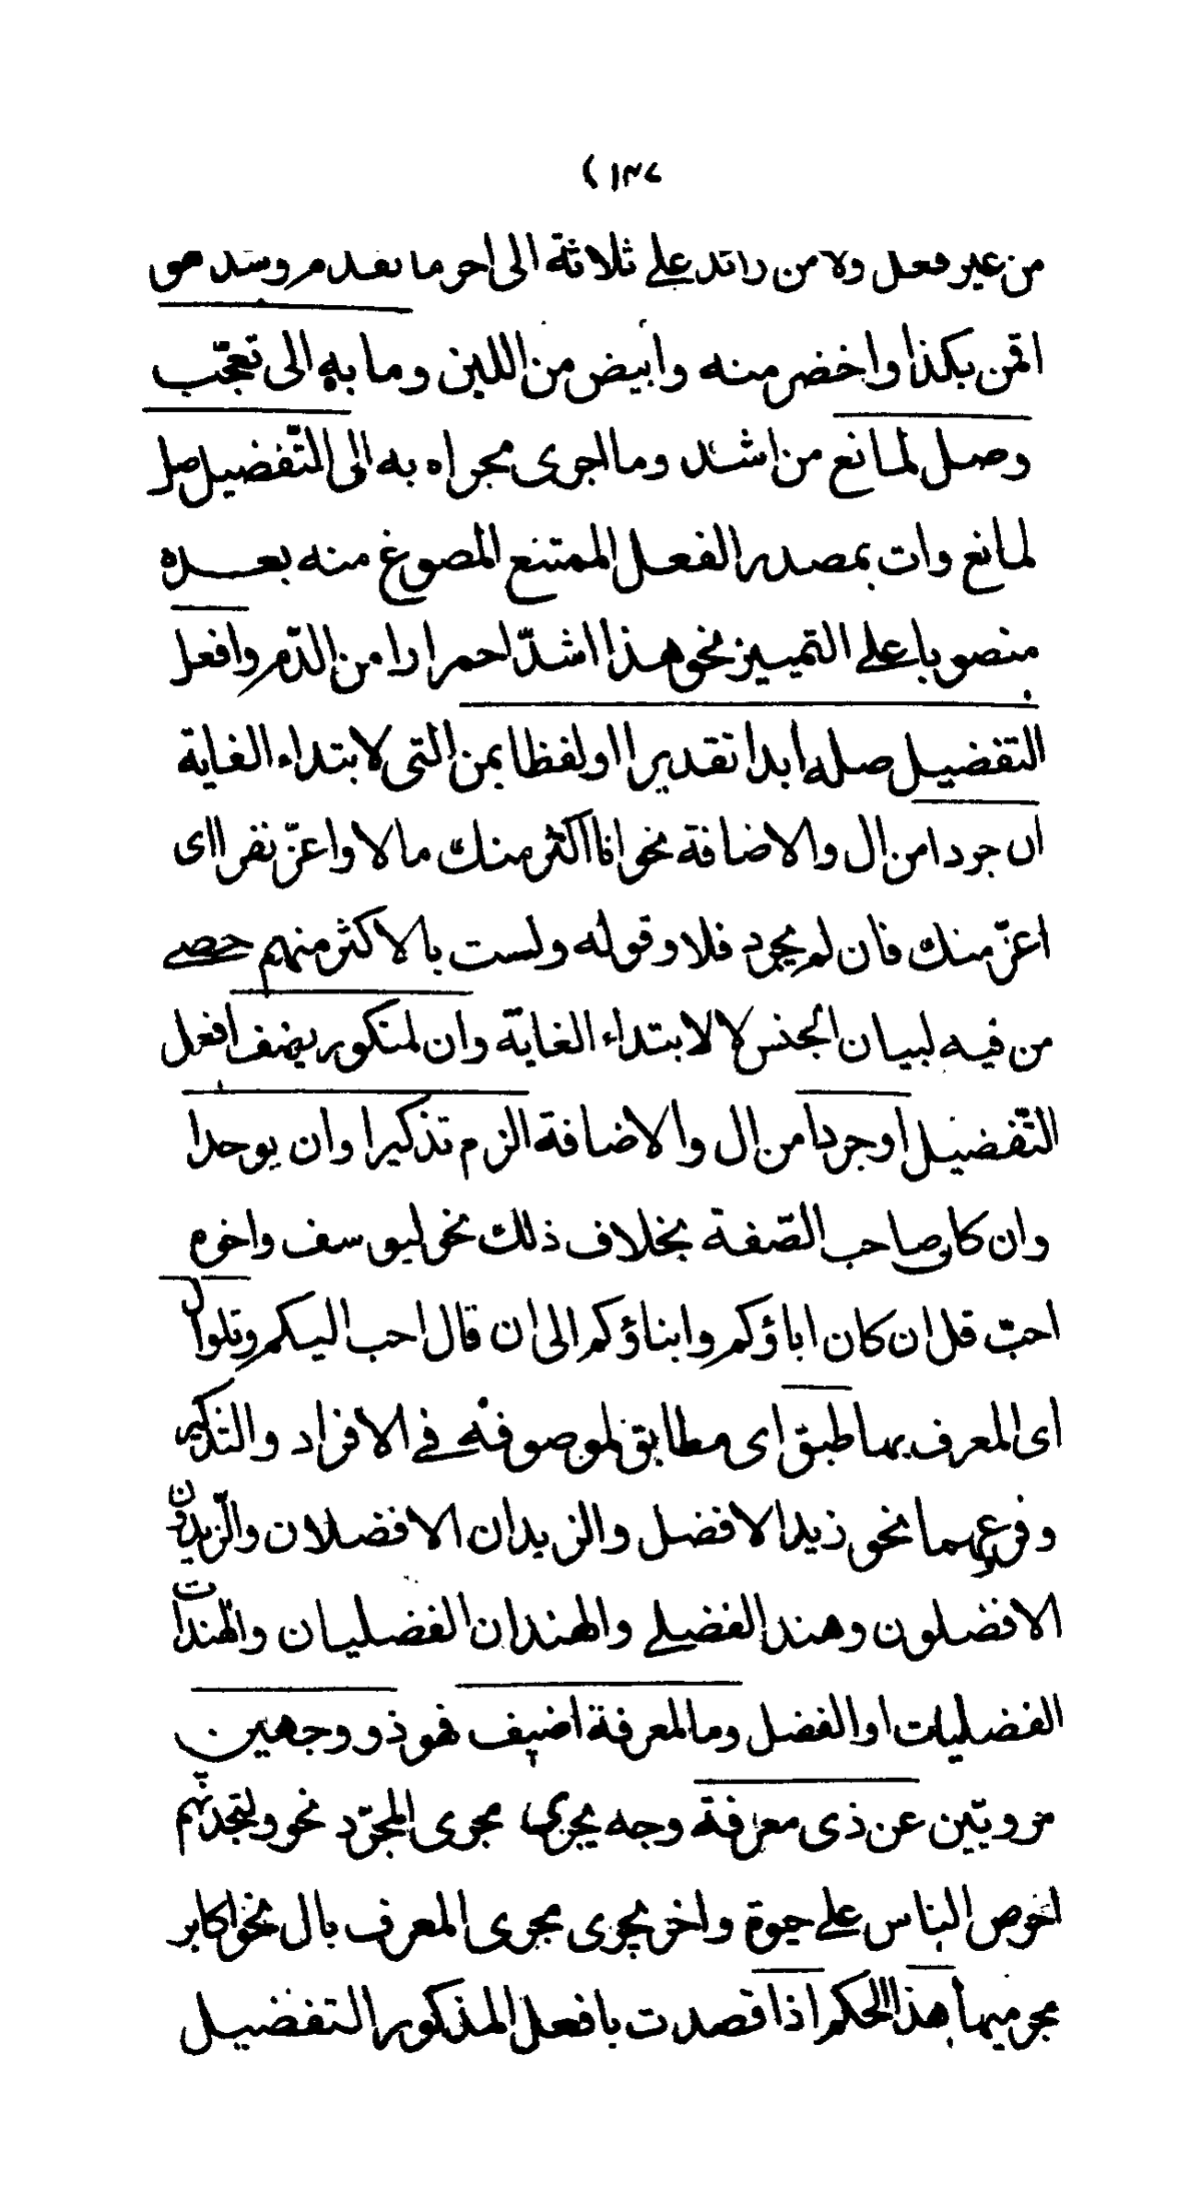 ١٣٧
من غير فعل ولا من زائد على ثلاثة الى اخر ما تقدم وشذ هو
اقمن بكذا واخضر منه وابيض من اللبن وما به الى تعجّب
وصل لمانع من اشد وما اجرى مجراه به الى التّفضيل صل
لمانع وات بمصدر الفعل الممتنع المصوغ منه بعده
منصوبا على التمييز نحو هذا اشدّ احمرارا من الدّم وافعل
التفضيل صله ابدا تقديرا او لفظا بمن التى لابتداء الغاية
ان جردا من ال والاضافة نحو انا اكثر منك مالا واعزّ نفرا اى
اعزّ منك فان لم يجرد فلا وقوله ولست بالاكثر منهم حصى
من فيه لبيان الجنس لا لابتداء الغاية وان لمنكور يضف افعل
التّفضيل او جردا من ال والاضافة الزم تذكيرا وان يوحدا
وان كان صاحب الصّفة بخلاف ذلك نحو ليوسف واخوه
احبّ قل ان كان اباؤكم وابناؤكم الى ان قال احب اليكم وتلو ال
اى المعرف بها طبق اى مطابق لموصوفه في الافراد والتذكير
وفرعيهما نحو زيد الافضل والزيدان الافضلان والزيدون
الافضلون وهند الفضلى والهندان الفضليان والهندات
الفضليات او الفضل وما لمعرفة اضيف فهو ذو وجهين
مرويّين عن ذى معرفة وجه يجرى مجرى المجرّد نحو ولتجدنهم
احرص الناس على حيوة واخر يجرى مجرى المعرف بال نحو اكابر
مجرميها هذا الحكم اذا قصدت بافعل المذكور التفضيل